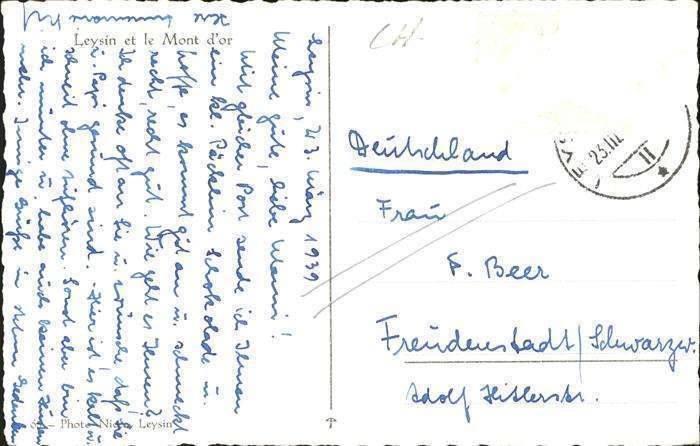 Leysin et le Mont d'or
Leysin, 23. März 1939
Meine gute, liebe Mammi!
Mit gleicher Post sende ich Ihnen
ein kl. Päcklein Schokolade u.
hoffe, es kommt gut an u. schmeckt
recht, recht gut. Wie geht es Ihnen?
Ich denke oft an Sie u. wünsche daß Sie
u. Papi gesund sind. - Hier ist es kalt u.
schneit ohne Aufhören. Sonst aber bin
ich munter u. habe auch keinen
mehr. Innige Grüße in
Ihre
Photo Leysin
CH
Deutschland
Frau
F. Beer
Freudenstadt/Schwarzw.
Adolf Hitlerstr.
23.III
11